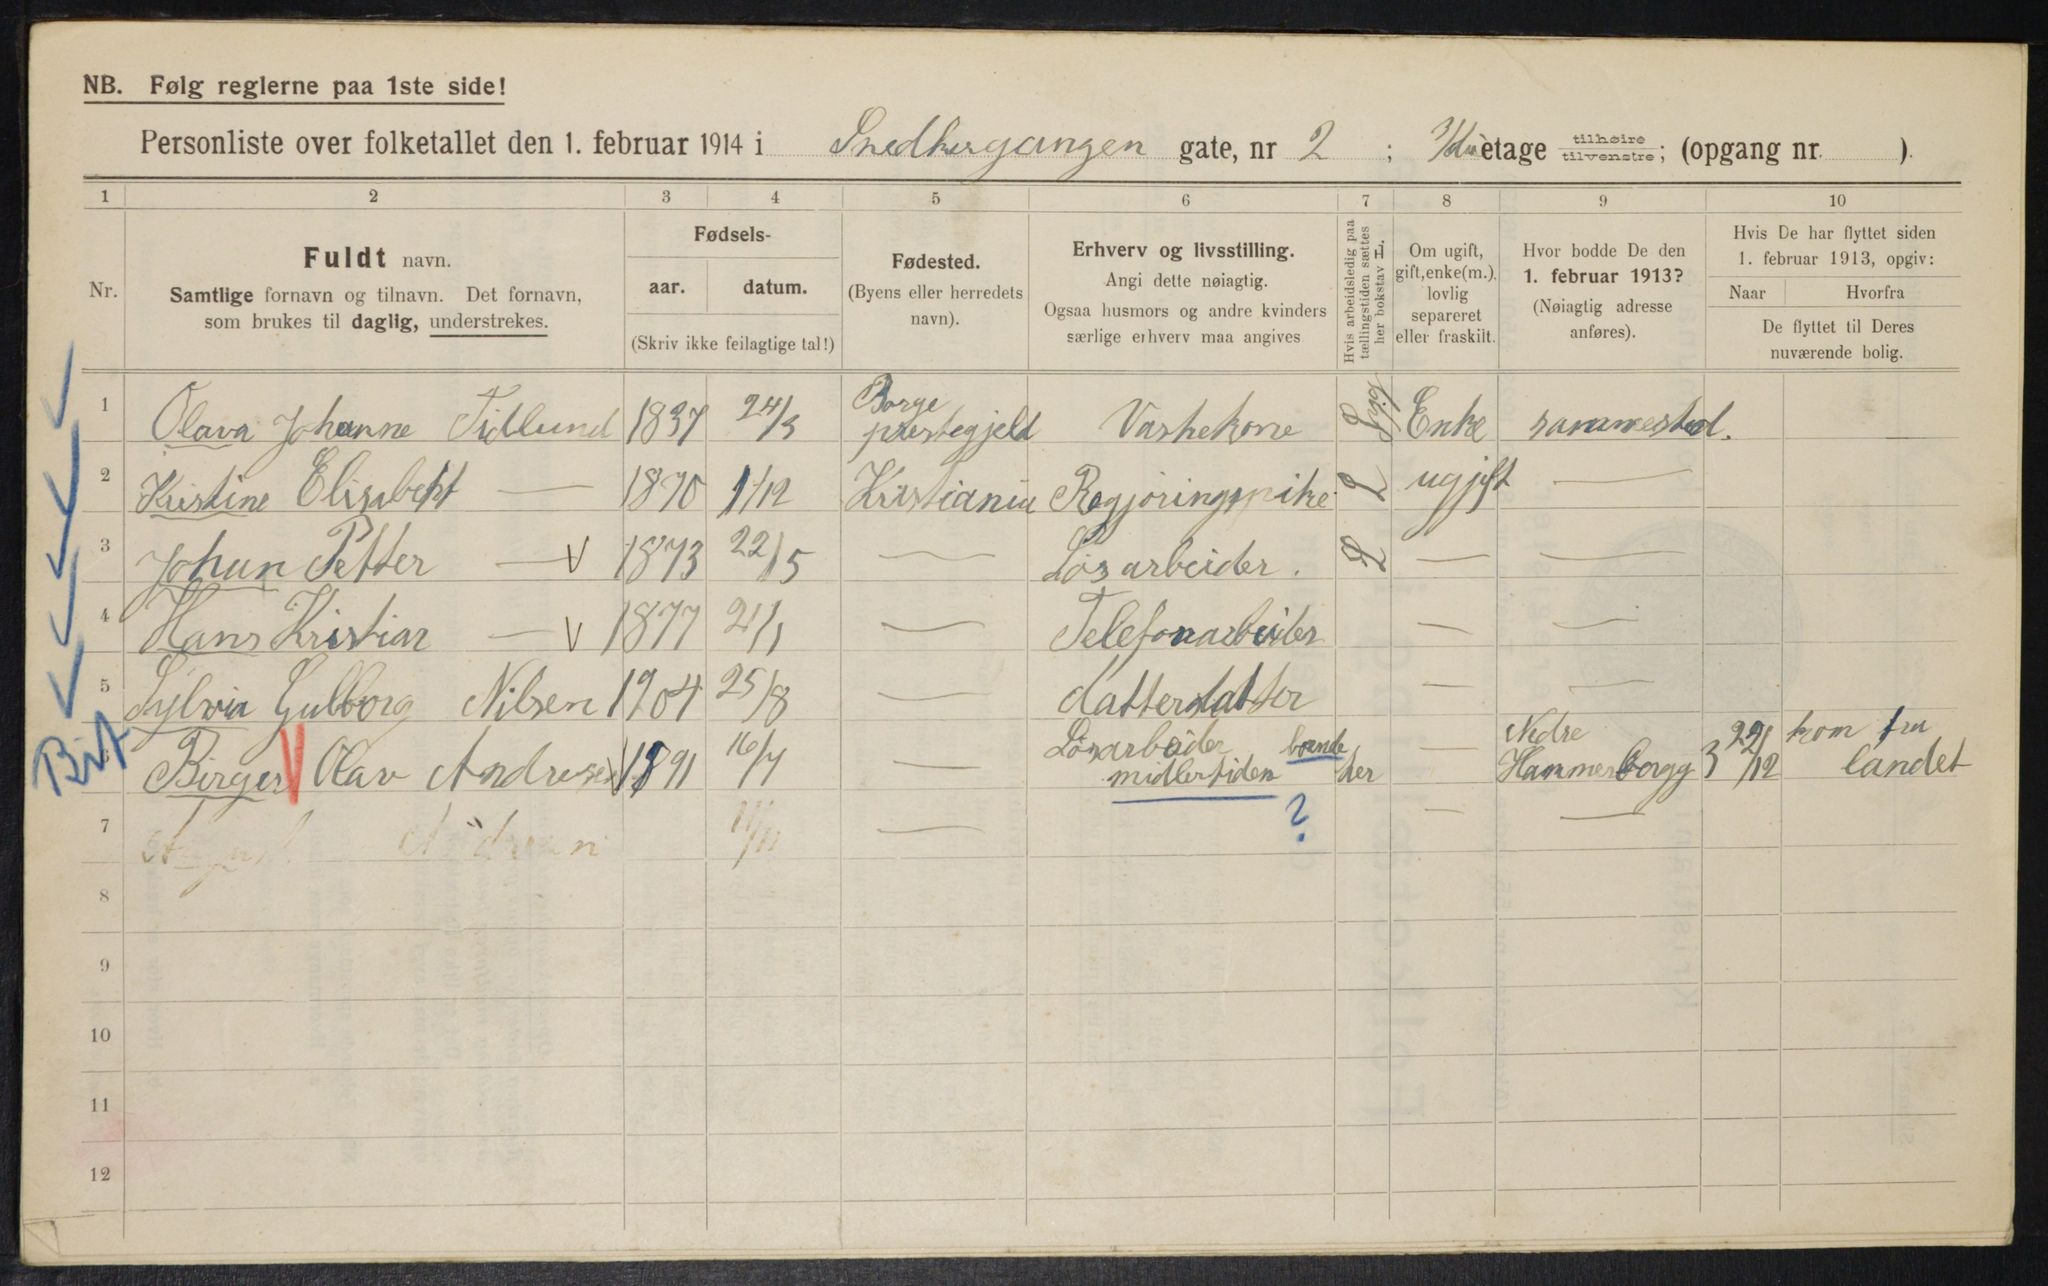 NB. Følg reglerne paa 1ste side!
Personliste over folketallet den 1. februar 1914 i Snedkergangen gate, nr 2 ; etage tilhøire tilvenstre; (opgang nr. ).
1 2 3 4 5 6 7 8 9 10
Nr.
Fuldt navn.
Samtlige fornavn og tilnavn. Det fornavn,
som brukes til daglig, understrekes.
Fødsels-
aar. datum.
(Skriv ikke feilagtige tal!)
Fødested.
(Byens eller herredets
navn).
Erhverv og livsstilling.
Angi dette nøiagtig.
Ogsaa husmors og andre kvinders
særlige erhverv maa angives
Hvis arbeidsledig paa
tællingstiden sættes
her bokstav L.
Om ugift,
gift, enke(m.),
lovlig
separeret
eller fraskilt.
Hvor bodde De den
1. februar 1913?
(Nøiagtig adresse
anføres).
Hvis De har flyttet siden
1. februar 1913, opgiv:
Naar Hvorfra
De flyttet til Deres
nuværende bolig.
1 Olava Johanne Tidlund 1837 24/3 Borge prestegjeld Vaskekone L Enke sammested.
2 Kristine Elisabeht — 1870 1/12 Kristiania Regjøringspike L ugift —
3 Johan Petter — V 1873 22/5 — Løsarbeider. L — —
4 Hans Kristian — V 1877 21/1 — Telefonarbeider — —
5 Sylvia Gulborg Nilsen 1904 25/8 — datterdatter — —
Birger V Olav Andresen 1891 16/7 Løsarbeider boende midlertiden her — Nedre Hammerborgg 3 22/12 kom fra landet
7 August Andresen 11/11 — — —
?
8
9
10
11
12